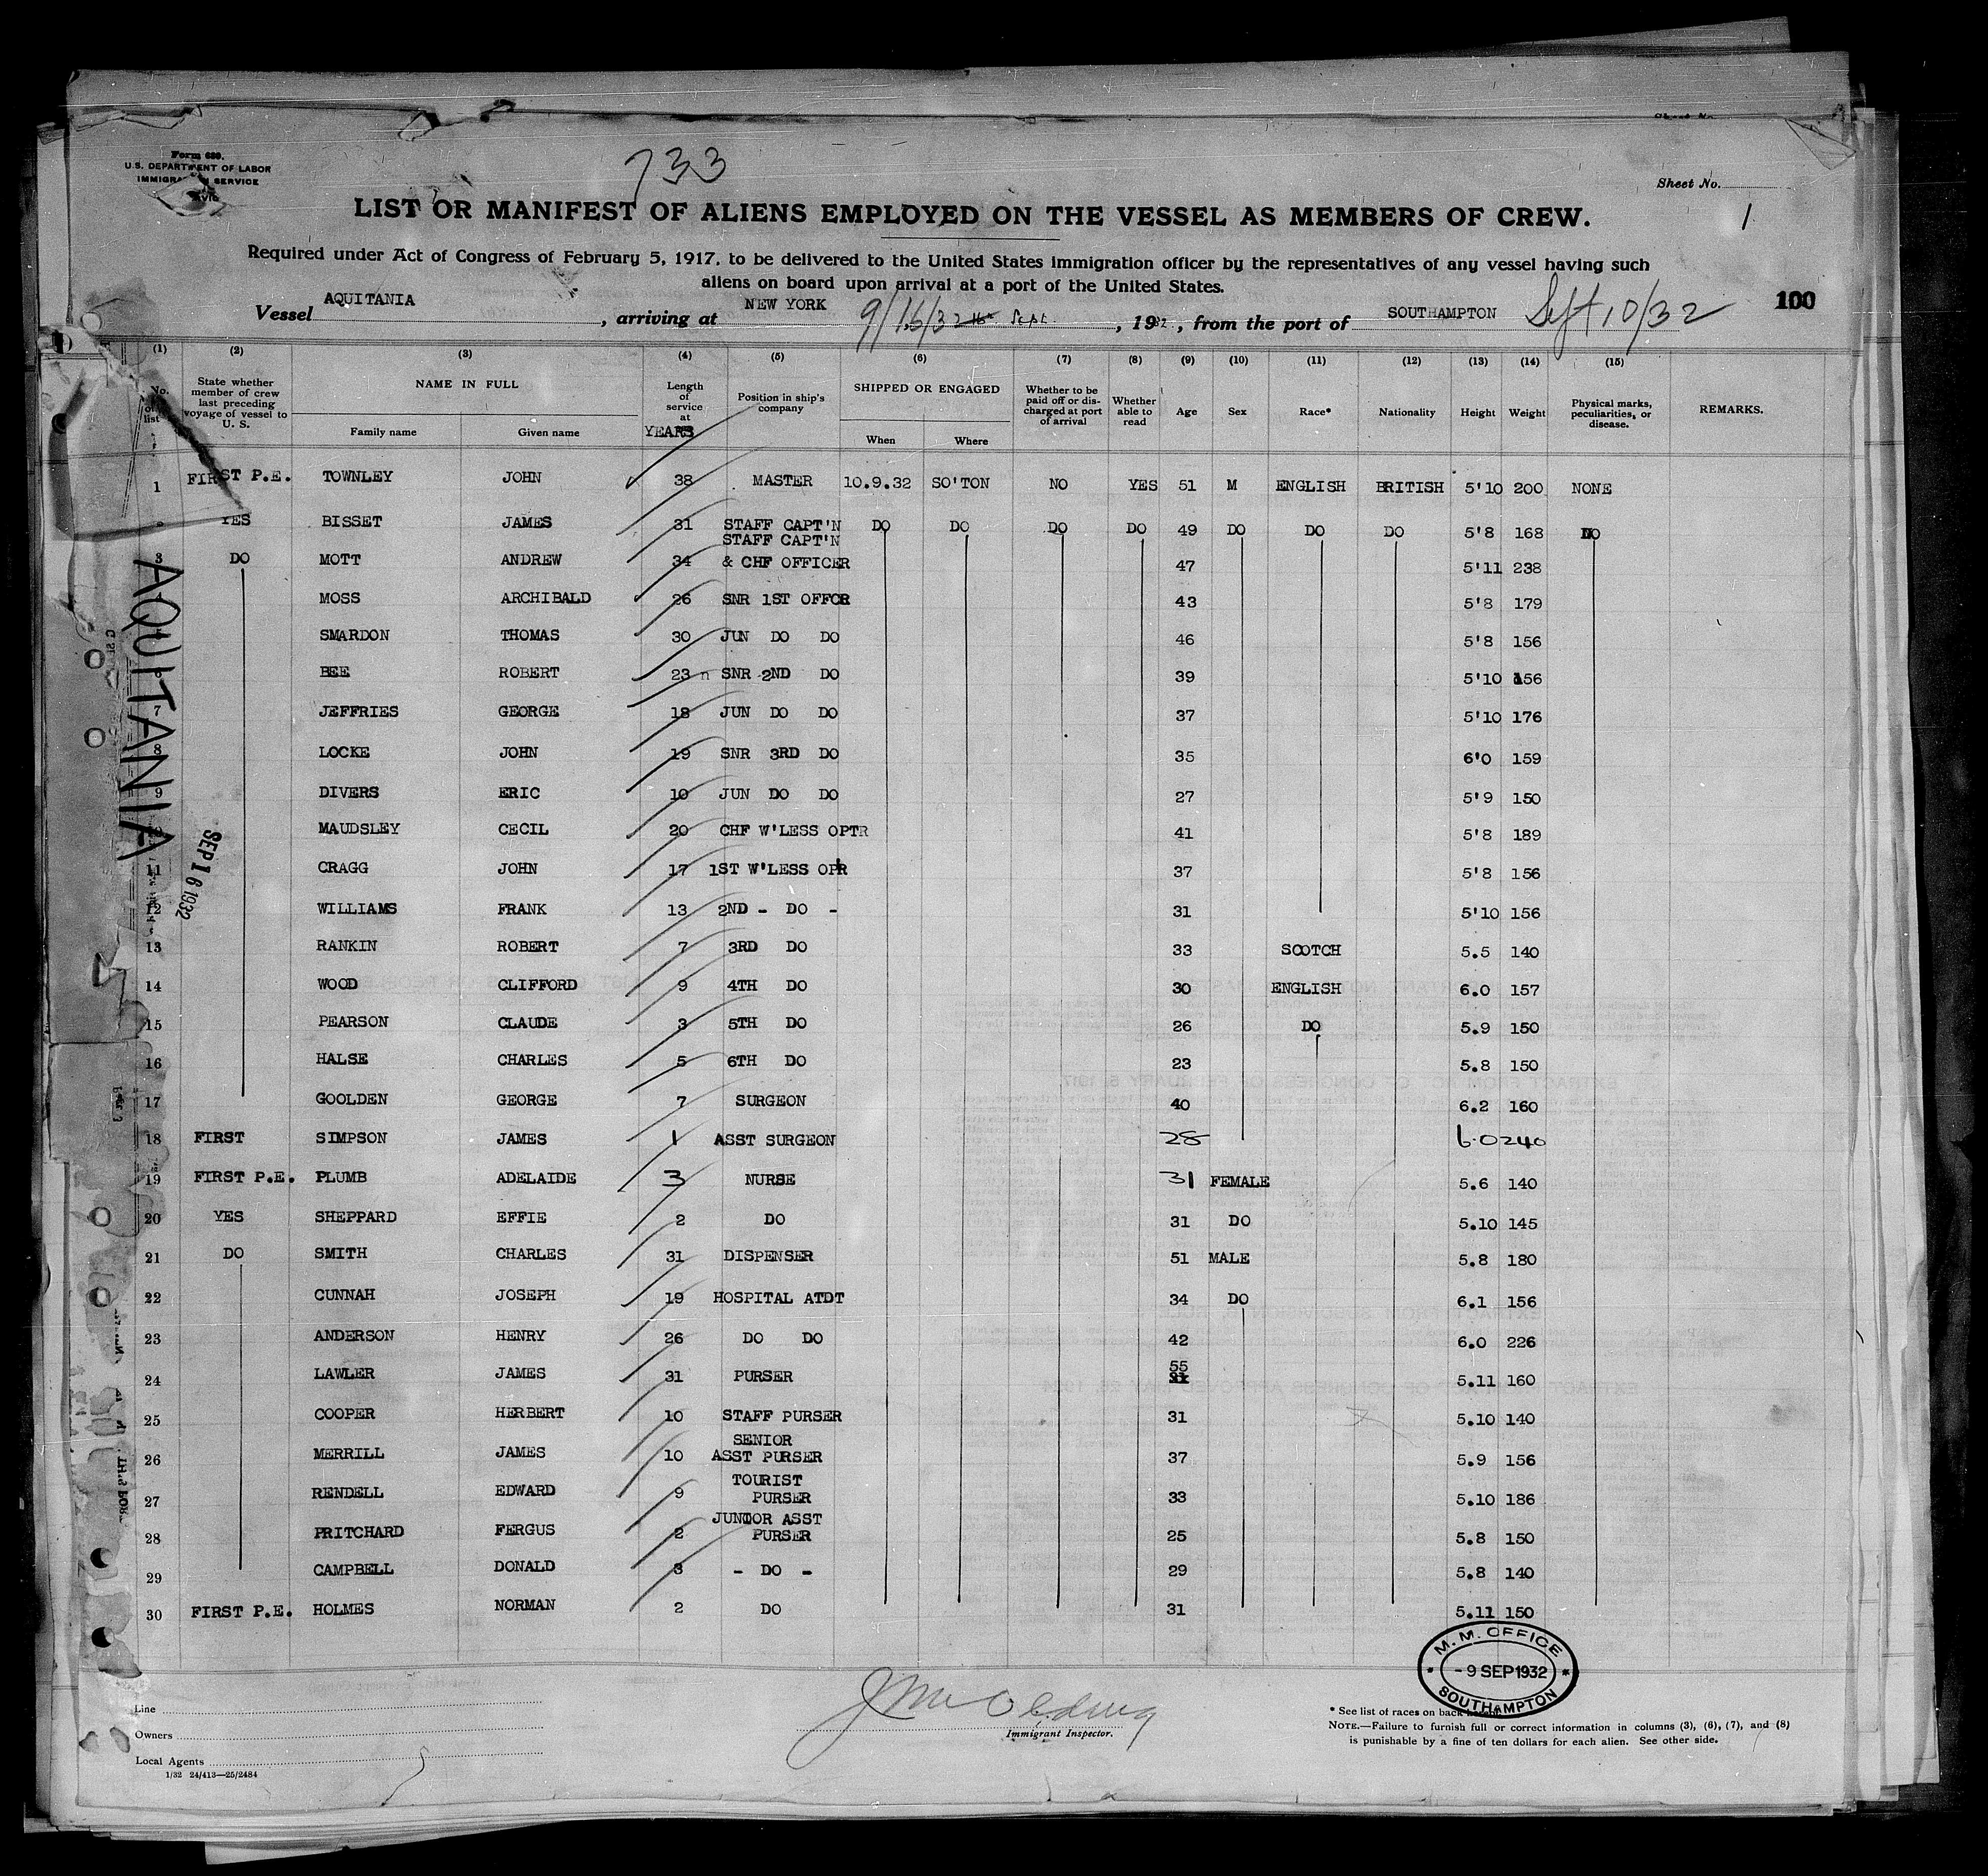 Form 680.
U.S. DEPARTMENT OF LABOR
IMMIGRATION SERVICE
733
Sheet No.
1
LIST OR MANIFEST OF ALIENS EMPLOYED ON THE VESSEL AS MEMBERS OF CREW.
Required under Act of Congress of February 5, 1917, to be delivered to the United States immigration officer by the representatives of any vessel having such
aliens on board upon arrival at a port of the United States.
Vessel AQUITANIA, arriving at NEW YORK 9/16/32 Sept., 1932, from the port of SOUTHAMPTON Sept 10/32 100
(1) (2) (3) (4) (5) (6) (7) (8) (9) (10) (11) (12) (13) (14) (15)
No. on list State whether member of crew last preceding voyage of vessel to U. S. NAME IN FULL Family name Given name Length of service at YEARS Position in ship's company SHIPPED OR ENGAGED When Where Whether to be paid off or discharged at port of arrival Whether able to read Age Sex Race* Nationality Height Weight Physical marks, peculiarities, or disease. REMARKS.
1 FIRST P.E. TOWNLEY JOHN 38 MASTER 10.9.32 SO'TON NO YES 51 M ENGLISH BRITISH 5'10 200 NONE
YES BISSET JAMES 31 STAFF CAPT'N DO DO DO DO 49 DO DO DO 5'8 168 DO
3 DO MOTT ANDREW 34 STAFF CAPT'N & CHF OFFICER 47 5'11 238
MOSS ARCHIBALD 26 SNR 1ST OFFCR 43 5'8 179
SMARDON THOMAS 30 JUN DO DO 46 5'8 156
BEE ROBERT 23 n SNR 2ND DO 39 5'10 156
7 JEFFRIES GEORGE 18 JUN DO DO 37 5'10 176
8 LOCKE JOHN 19 SNR 3RD DO 35 6'0 159
9 DIVERS ERIC 10 JUN DO DO 27 5'9 150
10 MAUDSLEY CECIL 20 CHF W'LESS OPTR 41 5'8 189
11 CRAGG JOHN 17 1ST W'LESS OPR 37 5'8 156
12 WILLIAMS FRANK 13 2ND - DO - 31 5'10 156
13 RANKIN ROBERT 7 3RD DO 33 SCOTCH 5.5 140
14 WOOD CLIFFORD 9 4TH DO 30 ENGLISH 6.0 157
15 PEARSON CLAUDE 3 5TH DO 26 DO 5.9 150
16 HALSE CHARLES 5 6TH DO 23 5.8 150
17 GOOLDEN GEORGE 7 SURGEON 40 6.2 160
18 FIRST SIMPSON JAMES 1 ASST SURGEON 28 6.0 240
19 FIRST P.E. PLUMB ADELAIDE 3 NURSE 31 FEMALE 5.6 140
20 YES SHEPPARD EFFIE 2 DO 31 DO 5.10 145
21 DO SMITH CHARLES 31 DISPENSER 51 MALE 5.8 180
22 CUNNAH JOSEPH 19 HOSPITAL ATDT 34 DO 6.1 156
23 ANDERSON HENRY 26 DO DO 42 6.0 226
24 LAWLER JAMES 31 PURSER 55 5.11 160
25 COOPER HERBERT 10 STAFF PURSER 31 5.10 140
26 MERRILL JAMES 10 SENIOR ASST PURSER 37 5.9 156
27 RENDELL EDWARD 9 TOURIST PURSER 33 5.10 186
28 PRITCHARD FERGUS 2 JUNIOR ASST PURSER 25 5.8 150
29 CAMPBELL DONALD 3 - DO - 29 5.8 140
30 FIRST P.E. HOLMES NORMAN 2 DO 31 5.11 150
AQUITANIA
SEP 16 1932
M. M. OFFICE
-9 SEP 1932
SOUTHAMPTON
Line
Owners
Local Agents
1/32 24/413—25/2484
Immigrant Inspector.
* See list of races on back
NOTE.—Failure to furnish full or correct information in columns (3), (6), (7), and (8)
is punishable by a fine of ten dollars for each alien. See other side.